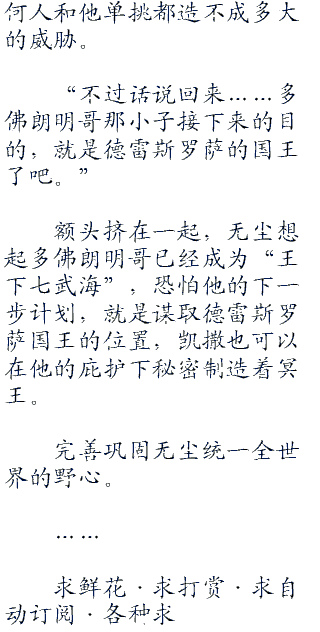 何人和他单挑都造不成多大
的威胁。
“不过话说回来……多
佛朗明哥那小子接下来的目
的，就是德雷斯罗萨的国王
了吧。”
额头挤在一起，无尘想
起多佛朗明哥已经成为“王
下七武海”，恐怕他的下一
步计划，就是谋取德雷斯罗
萨国王的位置，凯撒也可以
在他的庇护下秘密制造着冥
王。
完善巩固无尘统一全世
界的野心。
……
求鲜花·求打赏·求自
动订阅·各种求